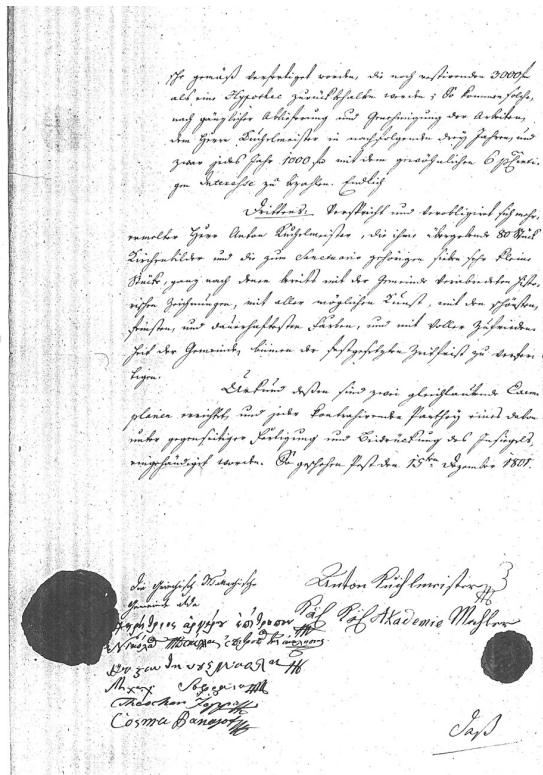 gemäß verfertiget worden, die noch restirenden 3000 f
als eine Hypothec zurückbehalten werde; So kommen solche,
nach gänzlicher Ablieferung und Genehmigung der Arbeiten,
dem Herrn Küchelmeister in nachfolgenden drey Jahren, und
zwar jedes Jahr 1000 f mit dem gewöhnlichen 6 
Interesse zu bezahlen. Endlich
Drittens. Verspricht und verobligirt sich mehr
ermelter Herr Anton Kuchelmeister, die ihm übergebene 80 Stück
Kirchenbilder und die zum Sanctuario gehörigen sieben sehr kleine
Stück, ganz nach denen bereits mit der Gemeinde verabredeten histo-
rischen Zeichnungen, mit aller möglichen Kunst, mit den schönsten,
feinsten, und dauerhaftesten Farben, und mit voller Zufrieden-
heit der Gemeinde, binnen der festgesetzten Zeitfrist zu verfer-
tigen.
Urkund dessen sind zwei gleichlautende Exem
plaria errichtet, und jeder kontrahirenden Parthey eines davon
unter gegenseitiger Fertigung und Beidrückung des Insiegels,
eingehändiget worden. So geschehen Pest den 15ten Dezember 1801.
Die Griechisch Wallachische
Gemeinde alda
Anton Kuchlmeister
Akademie Mahler
Theochar
Cosma